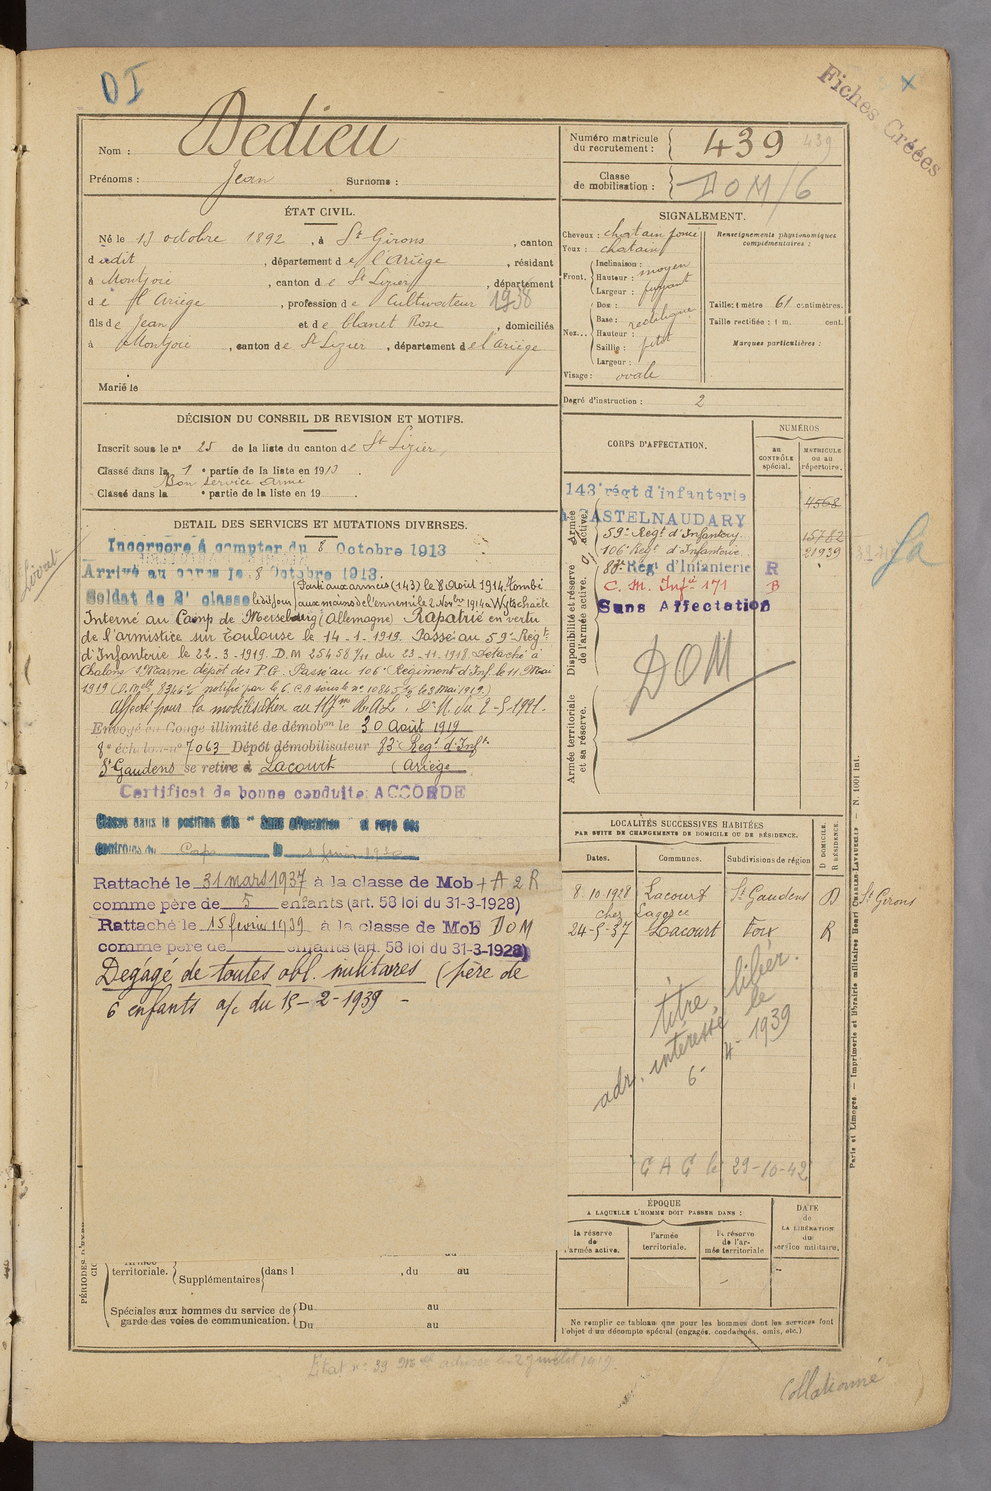 DI
Fiches Créées
Nom : Dedieu
Prénoms : Jean Surnoms :
Numéro matricule du recrutement : 439 439
Classe de mobilisation : DOM/6
ÉTAT CIVIL.
Né le 13 octobre 1892, à St Girons, canton
dudit, département de l'Ariège, résidant
à Montjoie, canton de St Lizier, département
de l'Ariège, profession de Cultivateur 1938
fils de Jean et de Blanet Rose, domiciliés
à Montjoie, canton de St Lizier, département de l'Ariège
Marié le
SIGNALEMENT.
Cheveux : chatain foncé
Yeux : chatain
Front. Inclinaison : moyen
Hauteur :
Largeur : fuyant
Nez... Dos :
Base : rectiligne
Hauteur :
Saillie : petit
Largeur :
Visage : ovale
Renseignements physionomiques complémentaires :
Taille: 1 mètre 61 centimètres.
Taille rectifiée : 1 m. cent.
Marques particulières :
Degré d'instruction : 2
DÉCISION DU CONSEIL DE REVISION ET MOTIFS.
Inscrit sous le n° 25 de la liste du canton de St Lizier,
Classé dans la 1e partie de la liste en 1913.
Bon service armé
Classé dans la e partie de la liste en 19 .
DETAIL DES SERVICES ET MUTATIONS DIVERSES.
Incorporé à compter du 8 Octobre 1913
Arrivé au corps le 8 Octobre 1913.
Soldat de 2e classe ledit jour
Parti aux armées (143) le 8 Août 1914. Tombé
aux mains de l'ennemi le 2 Nov bre 1914 à Wytschaete
Interné au Camp de Mersebourg (Allemagne) Rapatrié en vertu
de l'armistice sur Toulouse le 14-1-1919. Passé au 59e Régt
d'Infanterie le 22-3-1919. D.M 25458 1/11 du 23-11-1918 Détaché à
Chalons s/Marne dépôt des P.G. Passé au 106e Régiment d'Inf. le 11 Mai
1919
Affecté pour la mobilisation au
Envoyé en Congé illimité de démobon le 30 Août 1919
échelon n° 7063 Dépôt démobilisateur 83e Régt d'Inft.
St Gaudens se retire à Lacourt (Ariège
Certificat de bonne conduite ACCORDÉ
Classé dans la position dite "Sans affectation" et rayé des
contrôles du Corps le
Rattaché le 31 mars 1937 à la classe de Mob + A 2 R
comme père de 5 enfants (art. 58 loi du 31-3-1928)
Rattaché le 15 février 1939 à la classe de Mob DOM
comme père de enfants (art. 58 loi du 31-3-1928)
Dégagé de toutes obl. militaires (père de
6 enfants a/c du 15-2-1939 -
CORPS D'AFFECTATION.
NUMÉROS
AU CONTRÔLE spécial.
MATRICULE ou au répertoire.
Armée active.
Disponibilité et réserve de l'armée active.
Armée territoriale et sa réserve.
143e régt d'infanterie 4568
CASTELNAUDARY
59e Régt d'Infantery. 15782
106e Régt d'Infanterie 21939
Régt d'Infanterie R
C. M. Infie 171 B
Sans Affectation
DOM
LOCALITÉS SUCCESSIVES HABITÉES
PAR SUITE DE CHANGEMENTS DE DOMICILE OU DE RÉSIDENCE.
Dates. Communes. Subdivisions de région
D DOMICILE. R RÉSIDENCE.
8.10.1928 Lacourt St Gaudens D St Girons
24-5-37 Lacourt Foix R
titre libér.
adr. intéressé le
6-4-1939
G A G le 29-10-42
ÉPOQUE
A LAQUELLE L'HOMME DOIT PASSER DANS :
la réserve de l'armée active.
l'armée territoriale.
la réserve de l'armée territoriale
DATE de LA LIBÉRATION du service militaire.
Ne remplir ce tableau que pour les hommes dont les services font l'objet d'un décompte spécial (engagés, condamnés, omis, etc.)
territoriale. Supplémentaires dans l , du au
Spéciales aux hommes du service de garde des voies de communication. Du au
Du au
Paris et Limoges. — Imprimerie et librairie militaires Henri CHARLES-LAVAUZELLE — N. 1001 int.
Collationné